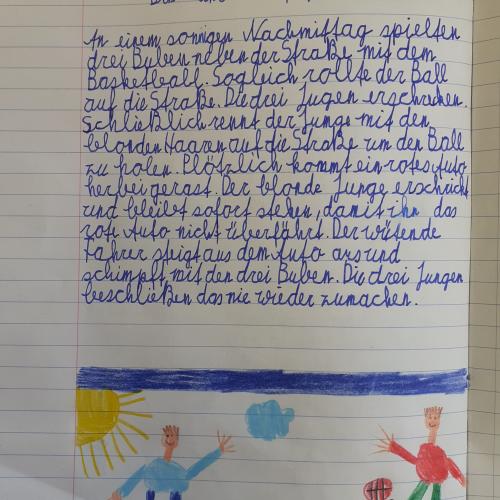 An einem sonnigen Nachmittag spielten
drei Buben neben der Straße mit dem
Basketball. Sogleich rollte der Ball
auf die Straße. Die drei Jugen erschrecken.
Schließlich rennt der Junge mit den
blonden Haaren auf die Straße um den Ball
zu holen. Plötzlich kommt ein rotes Auto
herbei gerast. Der blonde Junge erschrickt
und bleibt sofort stehen, damit ihn das
rote Auto nicht überfährt. Der wütende
Fahrer spigt aus dem Auto aus und
schimpft mit den drei Buben. Die drei Jungen
beschließen das nie wieder zumachen.